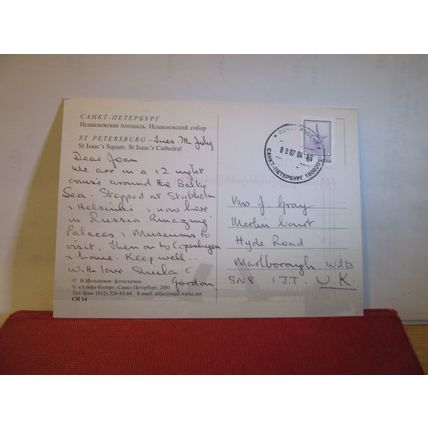 САНКТ-ПЕТЕРБУРГ
Исаакиевская площадь. Исаакиевский собор
ST PETERSBURG - Tues 7th July
St Isaac's Square. St Isaac's Cathedral
Dear Joan
We are on a 12 night
cruise around the Baltic
Sea. Stopped at Stockholm
& Helsinki & now here
in Russia Amazing
Palaces & Museums to
visit. Then on to Copenhagen
& home Keep well..
With love Sheila &
Gordon.
© «Альфа-Колор», Санкт-Петербург, 2001
Тел/факс (812) 326-83-84 E-mail:
CH 14
САНКТ-ПЕТЕРБУРГ
Mrs J. Gray
Merlin Court
Hyde Road
Marlborough Wilts
SN8 1JT. U.K.